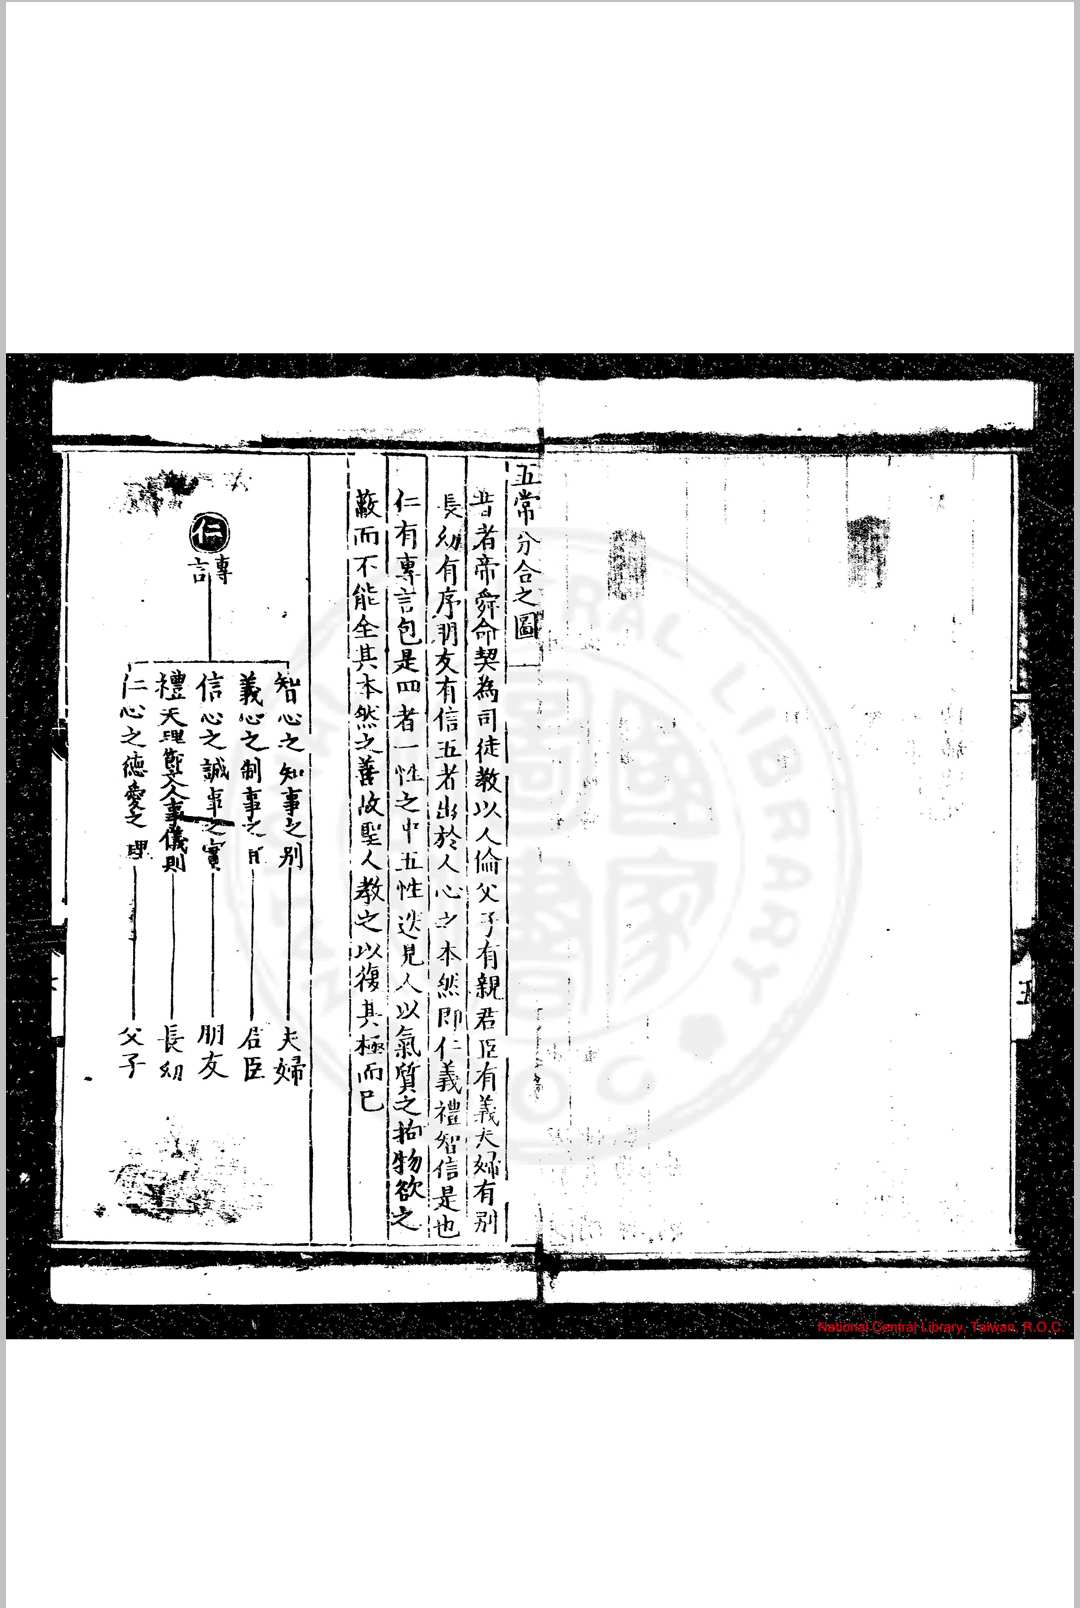 五常分合之圖
昔者帝舜命契為司徒教以人倫父子有親君臣有義夫婦有別
長幼有序朋友有信五者出於人心之本然即仁義禮智信是也
仁有專言包是四者一性之中五性迭見人以氣質之拘物欲之
蔽而不能全其本然之善故聖人教之以復其極而已
仁
專言
智心之知事之別
夫婦
義心之制事之
君臣
信心之誠事之實
朋友
禮天理節文人事儀則
長幼
仁心之德愛之理
父子
五
NATIONAL CENTRAL LIBRARY
R.O.C.
國家圖書館
National Central Library, Taiwan, R.O.C.